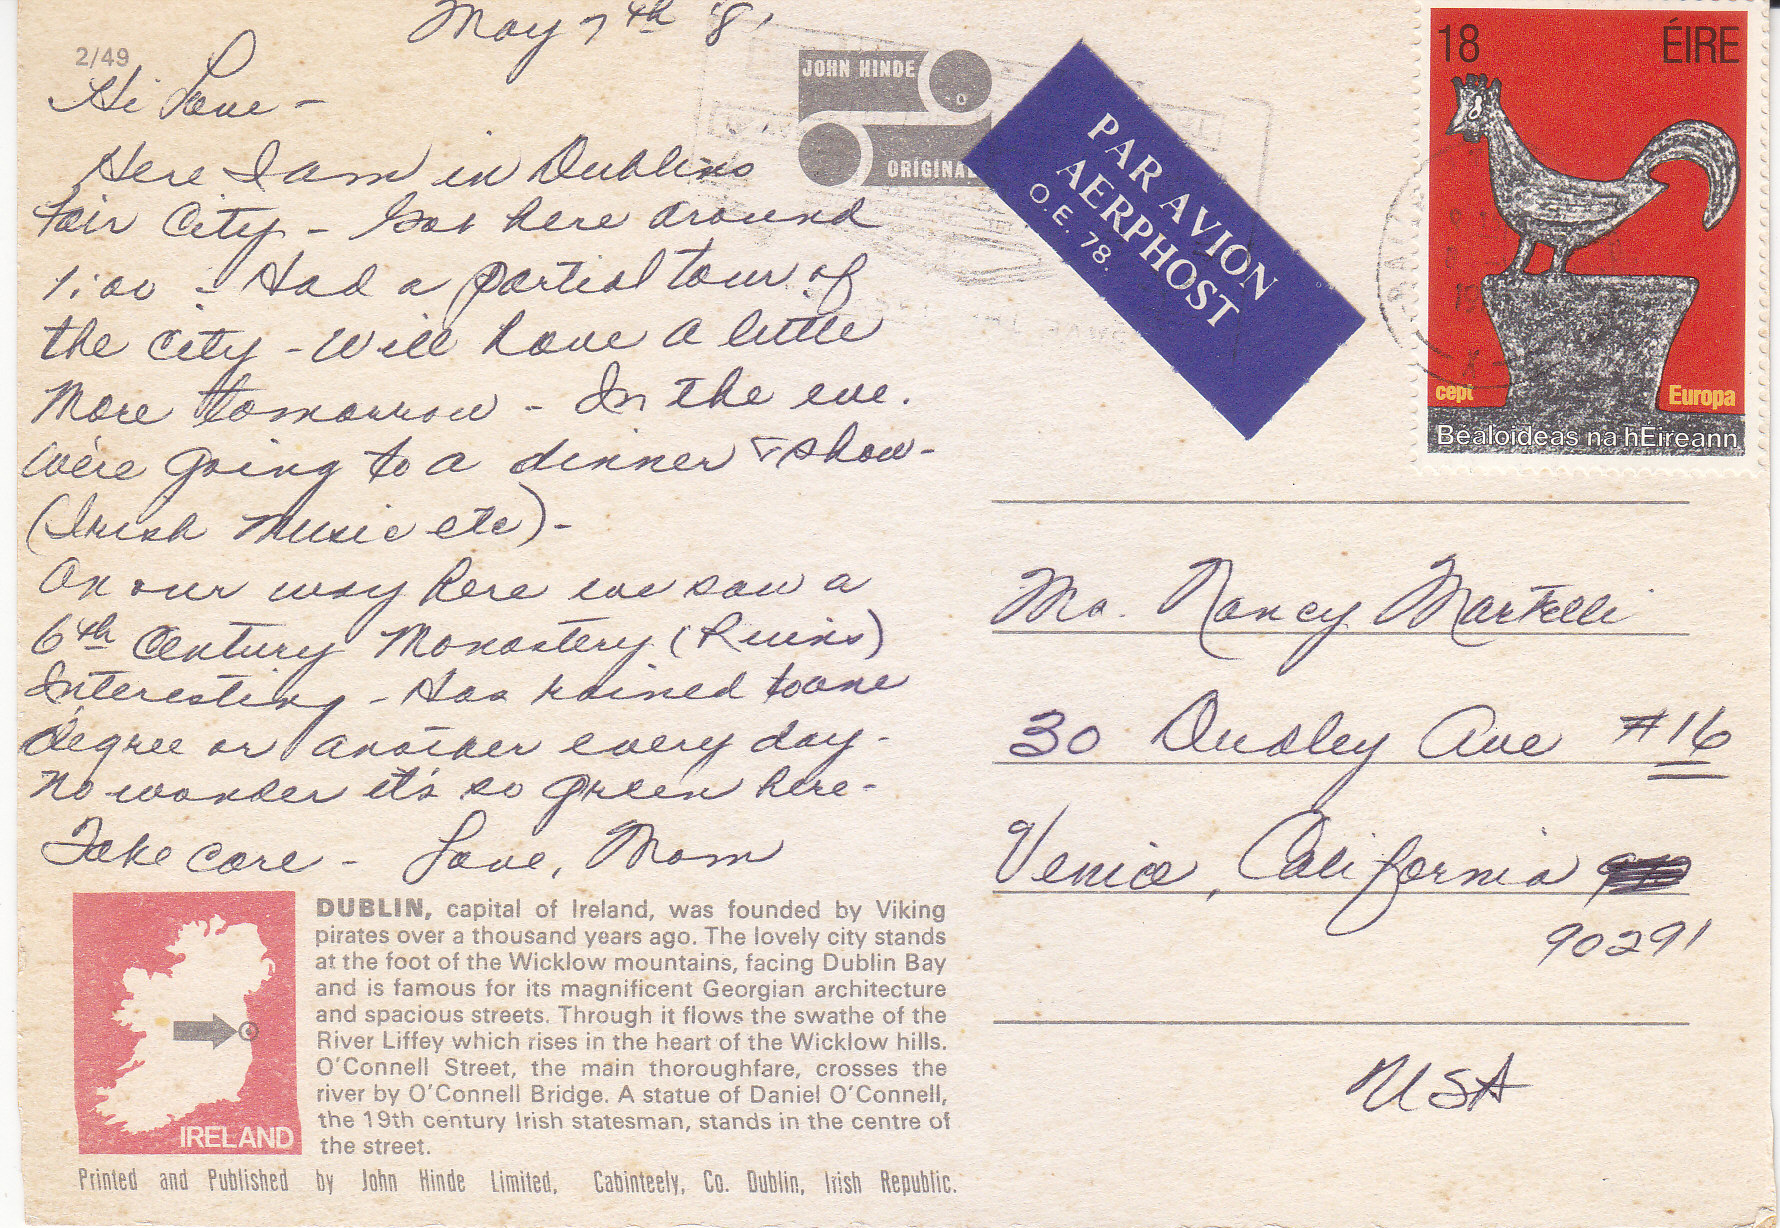 May 7th '81
2/49
Hi Love -
Here I am in Dublins
fair City - Got here around
1:00 - Had a partial tour of
the city - Will have a little
more tomorrow - In the eve.
we're going to a dinner & show -
(Irish Music etc) -
On our way here we saw a
6th Century Monastery (Ruins)
Interesting - Has rained to one
degree or another every day -
No wonder it's so green here -
Take care - Love, Mom
JOHN HINDE
ORIGINAL
PAR AVION
AERPHOST
O.E. 78.
18 ÉIRE
cept Europa
Béaloideas na hÉireann
Ms. Nancy Martelli
30 Dudley Ave #16
Venice, California
90291
USA
IRELAND
DUBLIN, capital of Ireland, was founded by Viking
pirates over a thousand years ago. The lovely city stands
at the foot of the Wicklow mountains, facing Dublin Bay
and is famous for its magnificent Georgian architecture
and spacious streets. Through it flows the swathe of the
River Liffey which rises in the heart of the Wicklow hills.
O'Connell Street, the main thoroughfare, crosses the
river by O'Connell Bridge. A statue of Daniel O'Connell,
the 19th century Irish statesman, stands in the centre of
the street.
Printed and Published by John Hinde Limited, Cabinteely, Co. Dublin, Irish Republic.